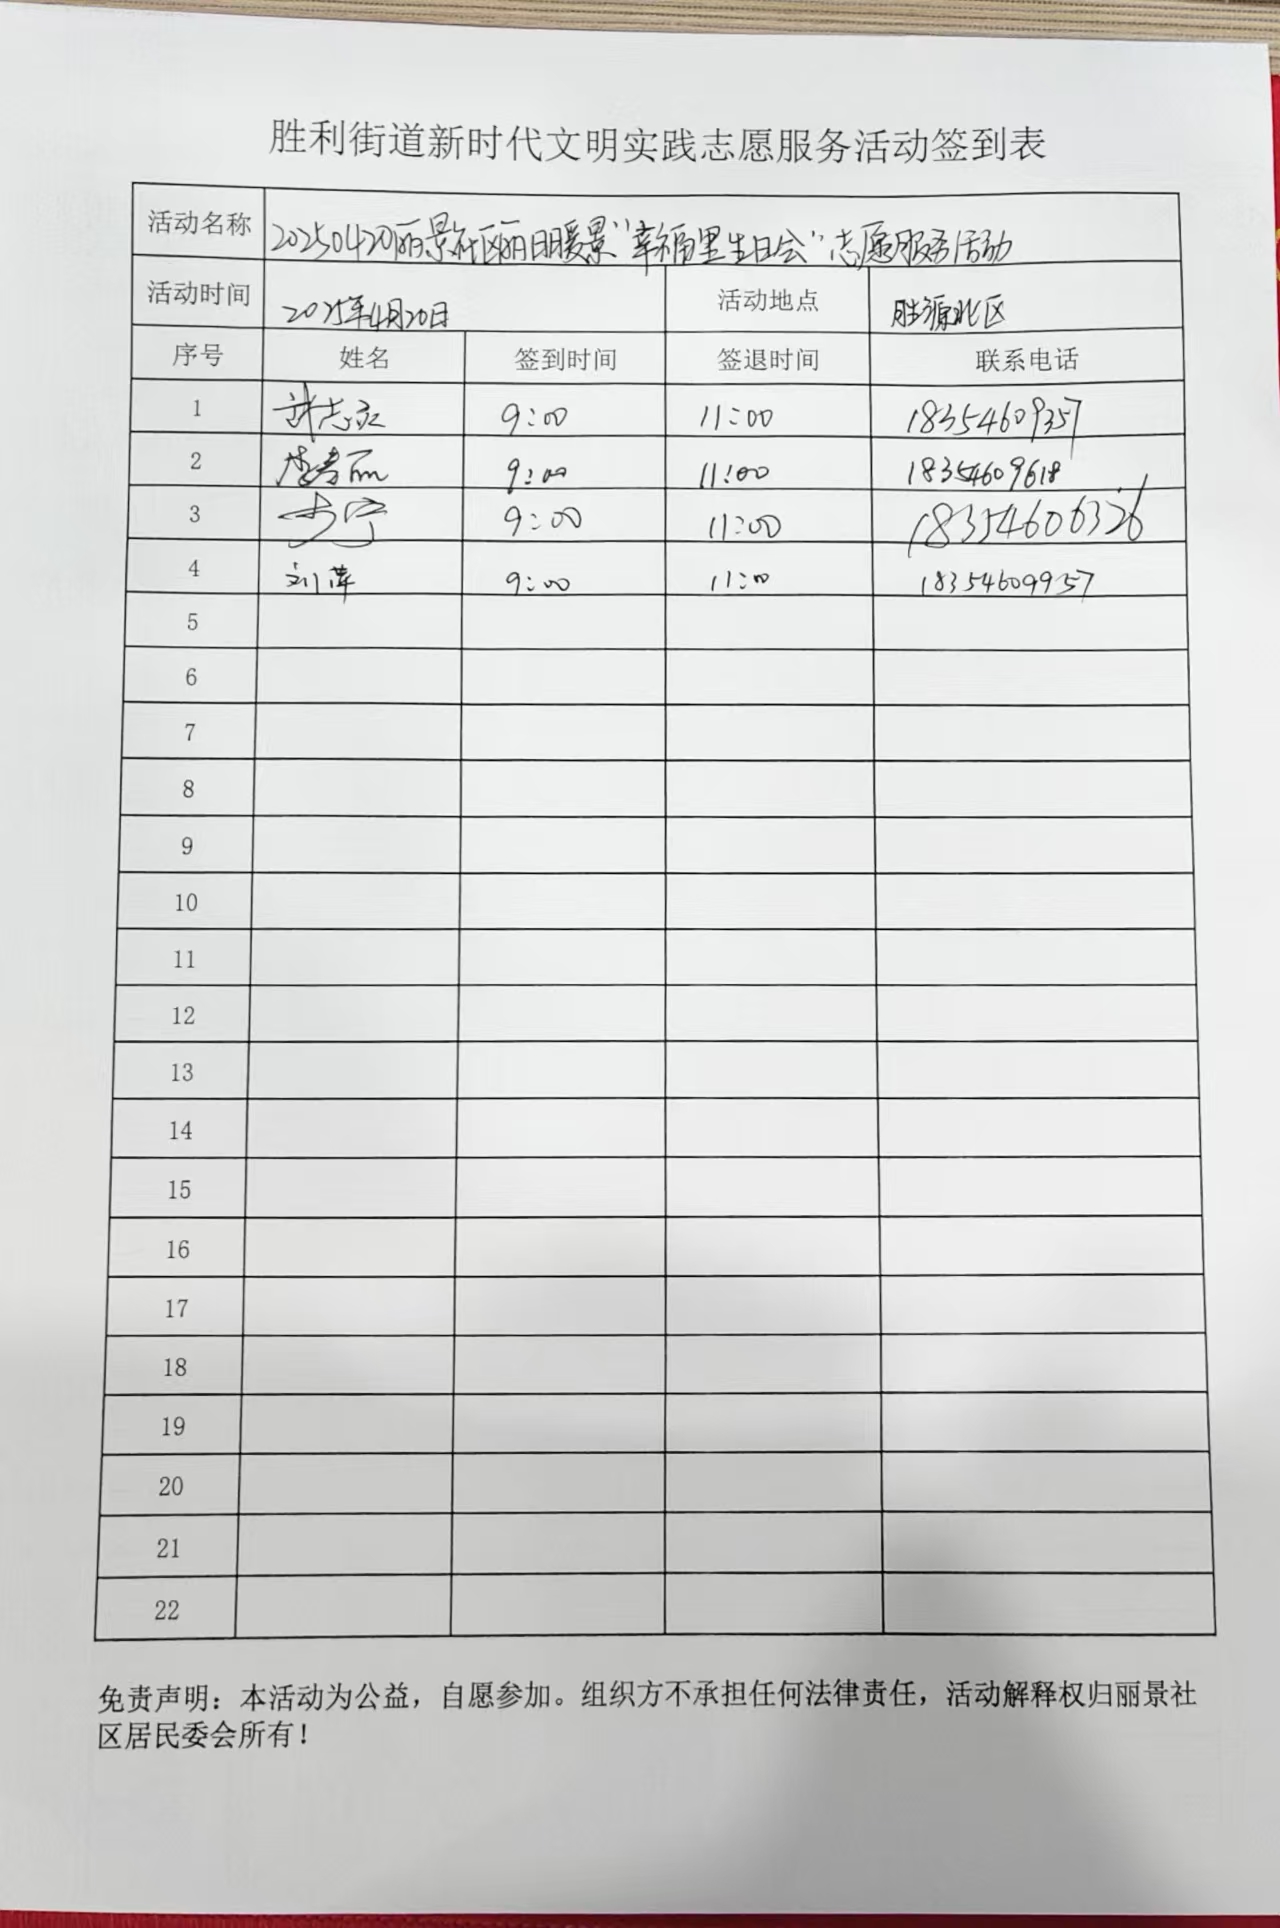 胜利街道新时代文明实践志愿服务活动签到表
活动名称 20250420丽景社区丽日暖景“幸福里生日会”志愿服务活动
活动时间 2025年4月20日 活动地点 胜源北区
序号 姓名 签到时间 签退时间 联系电话
1 9:00 11:00 18354609357
2 9:00 11:00 18354609618
3 9:00 11:00 18354606326
4 刘萍 9:00 11:00 18354609957
5
6
7
8
9
10
11
12
13
14
15
16
17
18
19
20
21
22
免责声明：本活动为公益，自愿参加。组织方不承担任何法律责任，活动解释权归丽景社
区居民委会所有！